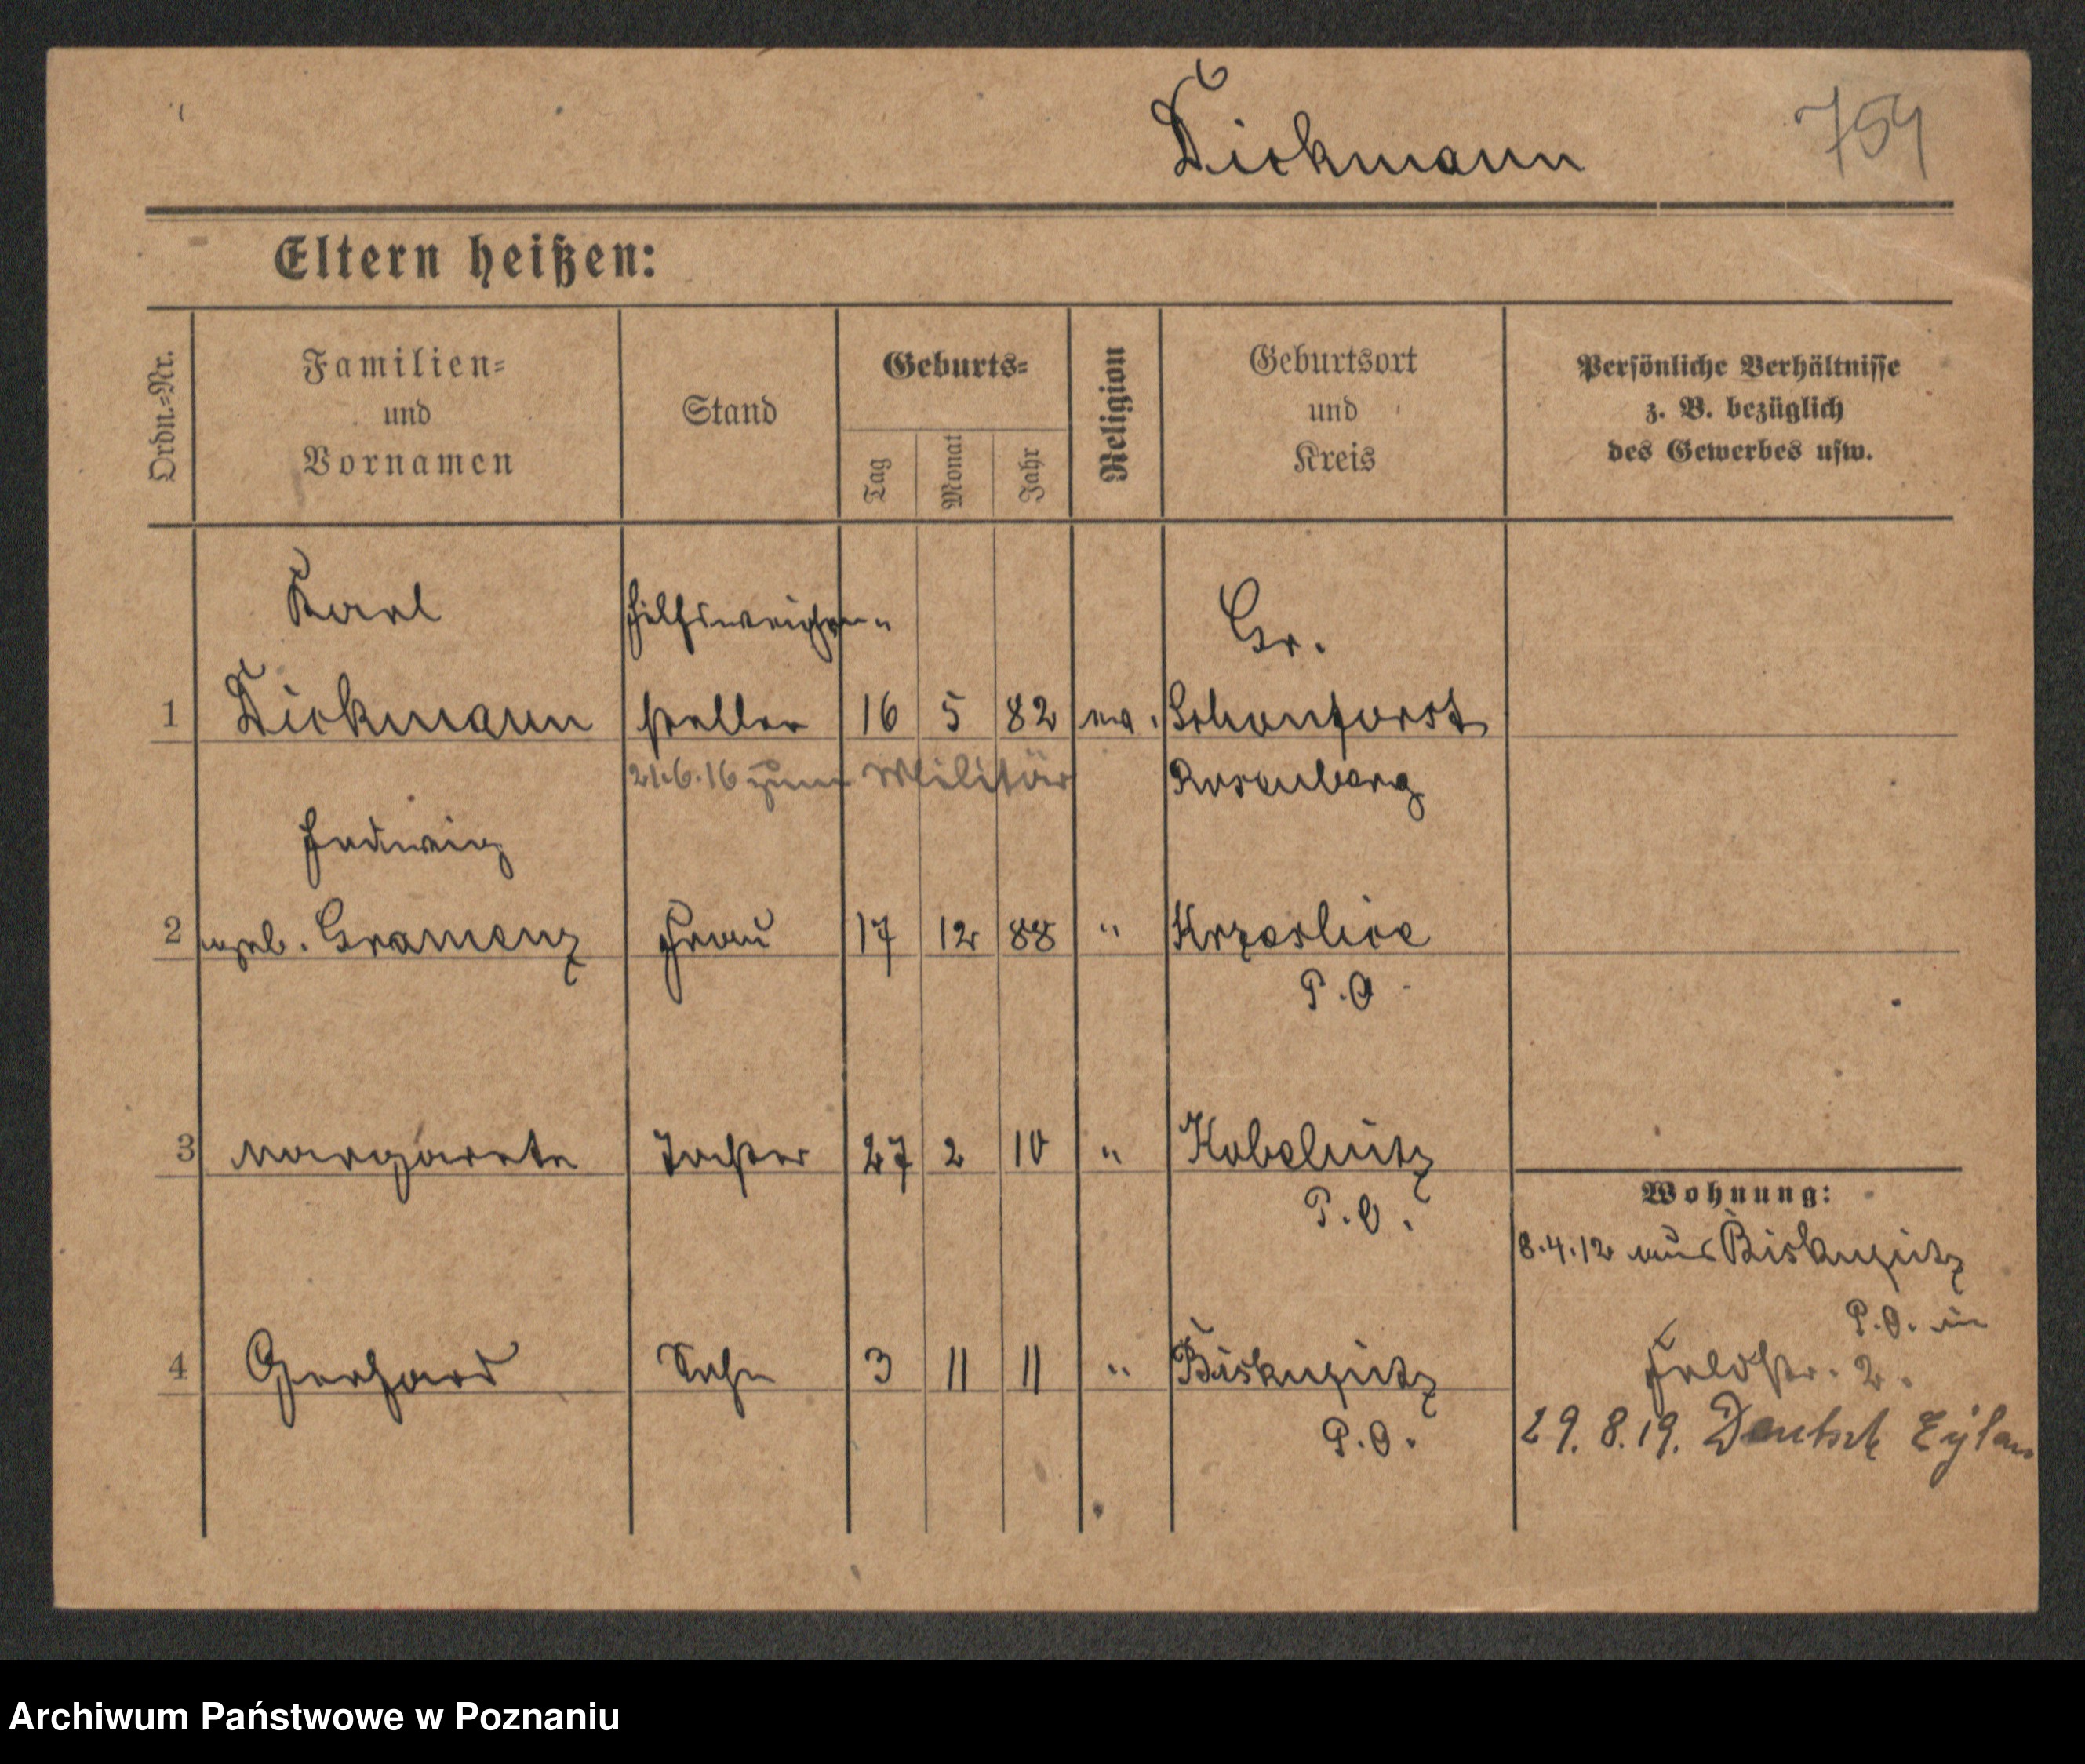 Dickmann
754
Eltern heißen:
Ordn.-Nr.
Familien-
und
Vornamen
Stand
Geburts-
Tag
Monat
Jahr
Religion
Geburtsort
und
Kreis
Persönliche Verhältnisse
z. B. bezüglich
des Gewerbes usw.
Karl Hilfsweichen- Gr.
1 Dickmann steller 16 5 82 ev. Schönforst
21.6.16 zum Militär Rosenberg
Hedwig
2 geb. Gramenz Frau 17 12 88 " Krzeslice
P.O.
3 Margarete Tochter 27 2 10 " Kobelnitz
P.O.
Wohnung:
8.4.12 aus Biskupitz
P.O. in
4 Gerhard Sohn 3 11 11 " Biskupitz
P.O.
Feldstr. 2.
29.8.19. Deutsch Eylau
Archiwum Państwowe w Poznaniu